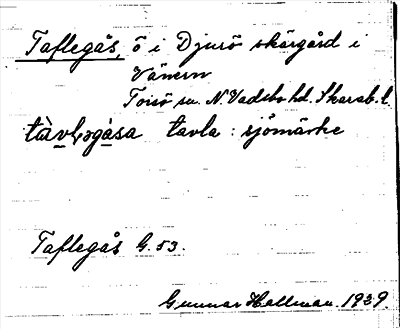 Taflegås, ö i Djurö skärgård i
Vänern
Torsö sn. N. Vadsbo hd. Skarab. l.
tàvləgàsa tavla : sjömärke
Taflegås G. 53.
Gunnar Hallman. 1929.